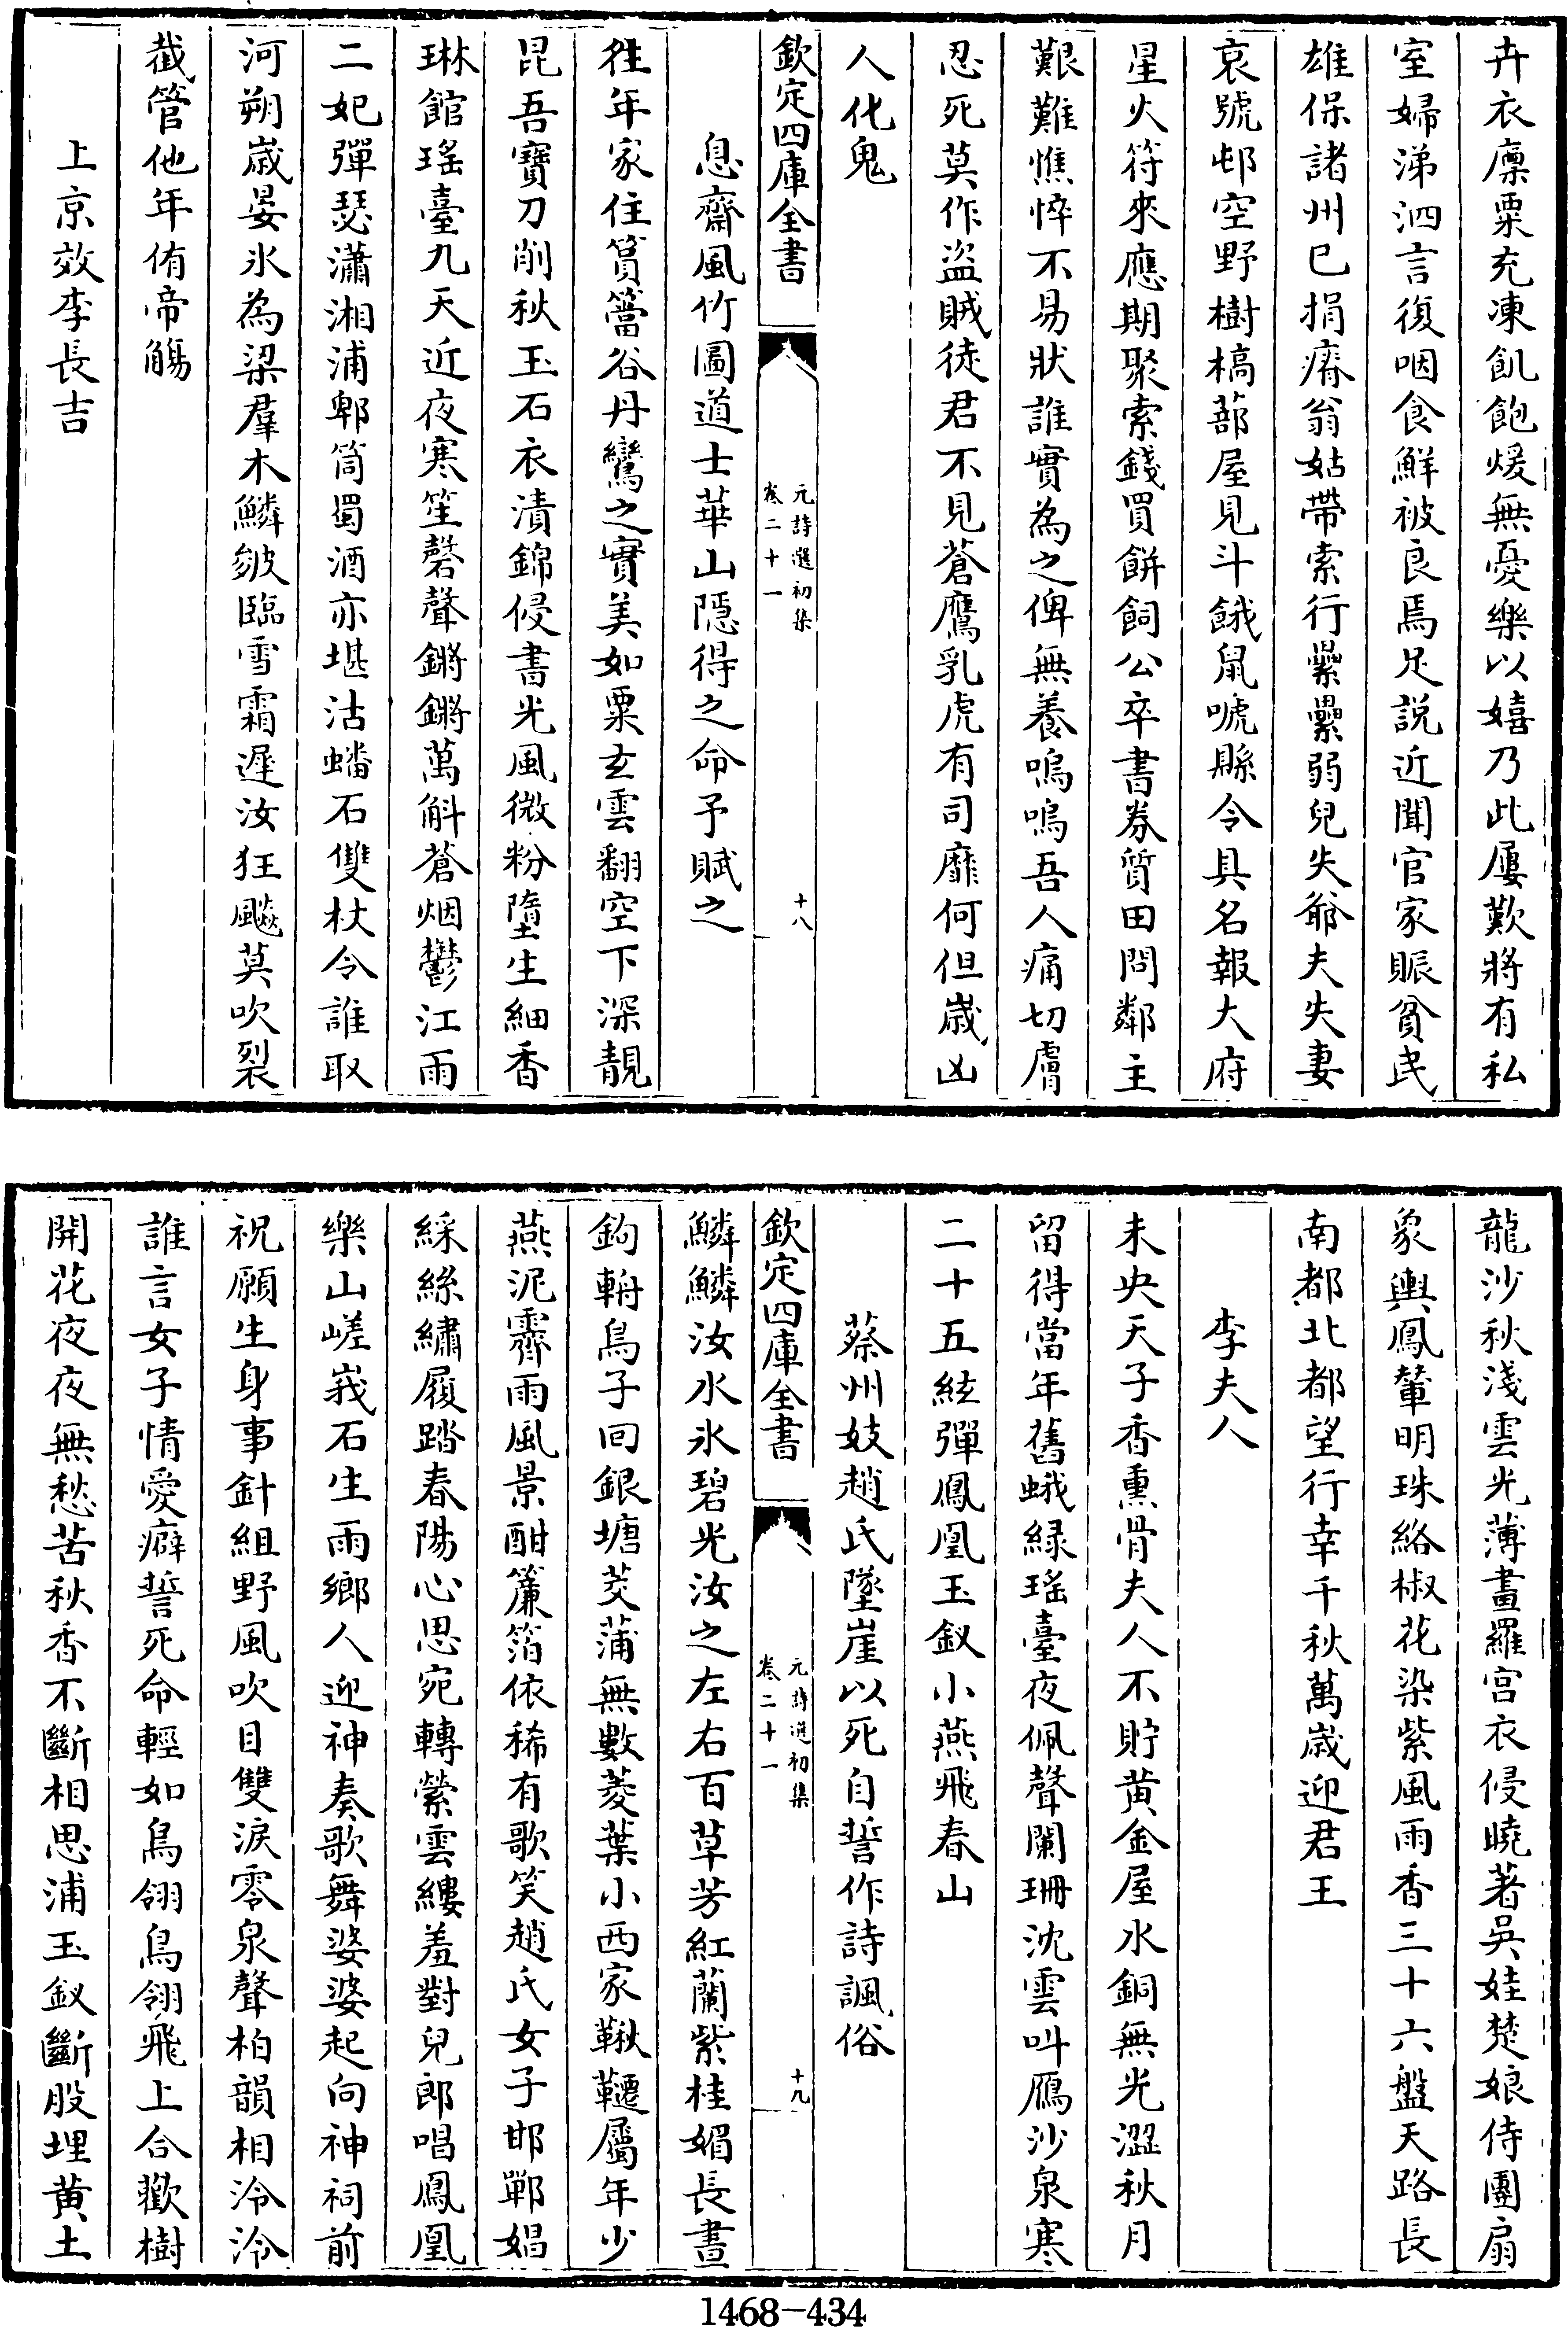 卉衣廩粟充凍飢飽煖無憂樂以嬉乃此屢歎將有私
室婦涕泗言復咽食鮮被良焉足説近聞官家賑貧民
雄保諸州已捐瘠翁姑帶索行纍纍弱兒失爺夫失妻
哀號邨空野樹槁蔀屋見斗餓鼠唬縣令具名報大府
星火符來應期聚索錢買餅飼公卒書券質田問鄰主
艱難憔悴不易狀誰實為之俾無養嗚嗚吾人痛切膚
忍死莫作盜賊徒君不見蒼鷹乳虎有司靡何但歲凶
人化鬼
欽定四庫全書
元詩選初集
卷二十一
十八
息齋風竹圖道士華山隱得之命予賦之
徃年家住篔簹谷丹鸞之實美如粟玄雲翻空下深靚
昆吾寶刀削秋玉石衣漬錦侵書光風微粉墮生細香
琳館瑤臺九天近夜寒笙磬聲鏘鏘萬斛蒼烟鬱江雨
二妃彈瑟瀟湘浦郫筒蜀酒亦堪沽蟠石雙杖令誰取
河朔歲晏氷為梁羣木鱗皴臨雪霜遲汝狂飈莫吹裂
截管他年侑帝觴
上京效李長吉
龍沙秋淺雲光薄畫羅宮衣侵曉著吳娃楚娘侍團扇
象輿鳳輦明珠絡椒花染紫風雨香三十六盤天路長
南都北都望行幸千秋萬歲迎君王
李夫人
未央天子香熏骨夫人不貯黃金屋水銅無光澀秋月
留得當年舊蛾綠瑤臺夜佩聲闌珊沈雲叫鴈沙泉寒
二十五絃彈鳳凰玉釵小燕飛春山
蔡州妓趙氏墜崖以死自誓作詩諷俗
欽定四庫全書
元詩選初集
卷二十一
十九
鱗鱗汝水氷碧光汝之左右百草芳紅蘭紫桂媚長晝
鉤輈鳥子回銀塘茭蒲無數菱葉小西家鞦韆屬年少
燕泥霽雨風景酣簾箔依稀有歌笑趙氏女子邯鄲娼
綵絲繡履踏春陽心思宛轉縈雲縷羞對兒郎唱鳳凰
樂山嵯峩石生雨鄉人迎神奏歌舞婆婆起向神祠前
祝願生身事針組野風吹目雙淚零泉聲柏韻相泠泠
誰言女子情愛癖誓死命輕如鳥翎鳥翎飛上合歡樹
開花夜夜無愁苦秋香不斷相思浦玉釵斷股埋黃土
1468-434